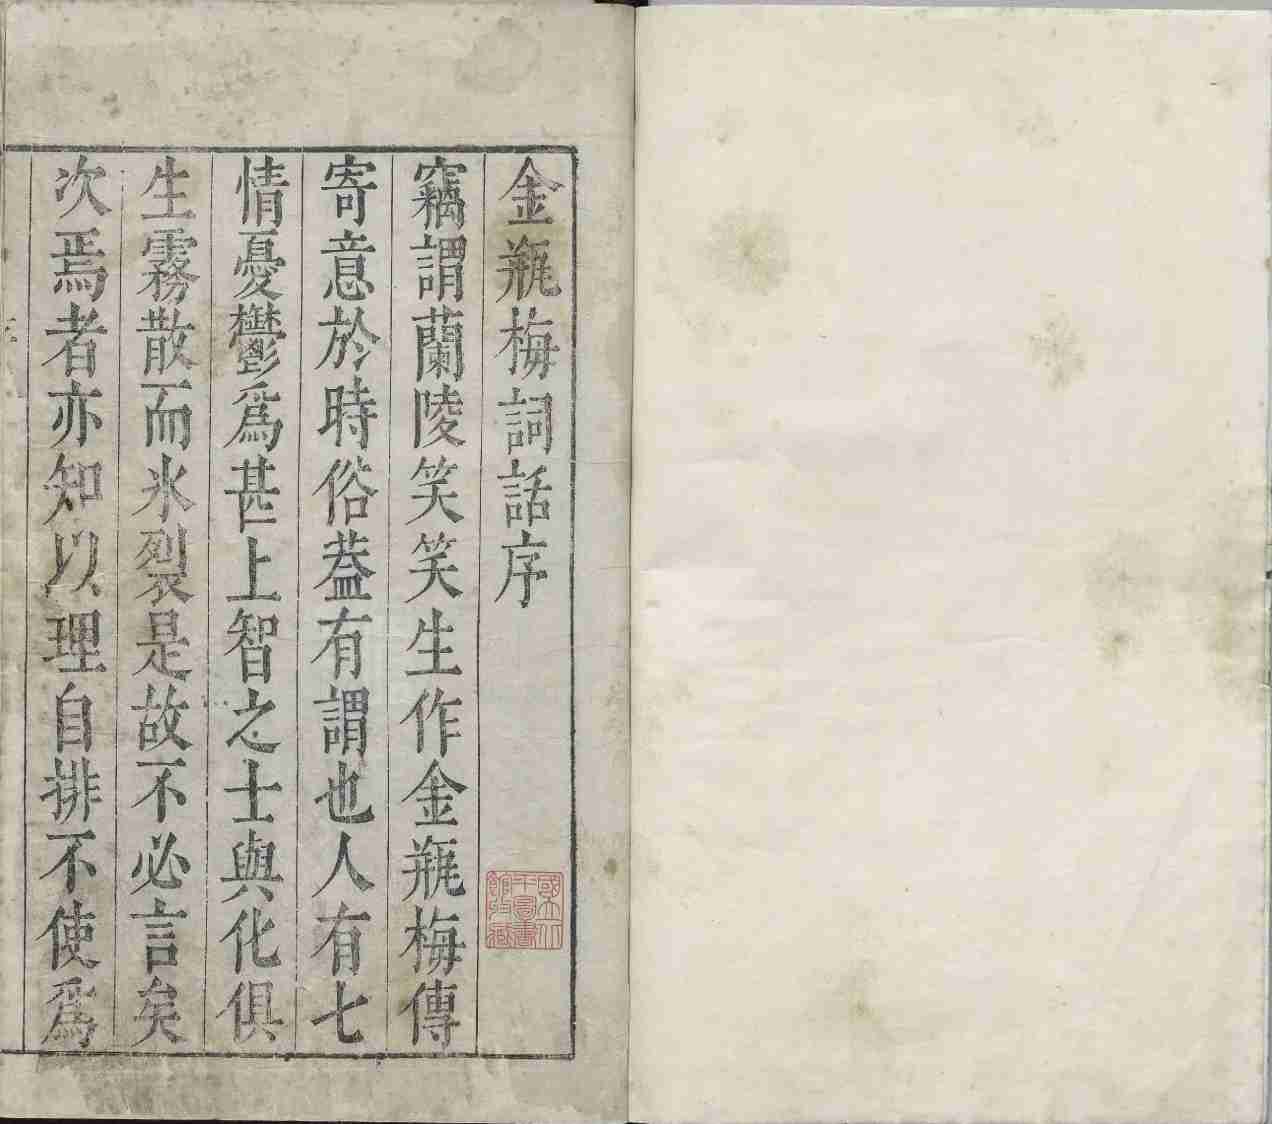 金瓶梅詞話序
竊謂蘭陵笑笑生作金瓶梅傳
寄意於時俗葢有謂也人有七
情憂鬱爲甚上智之士與化俱
生霧散而氷裂是故不必言矣
次焉者亦知以理自排不使爲
國立北
平圖書
館收藏